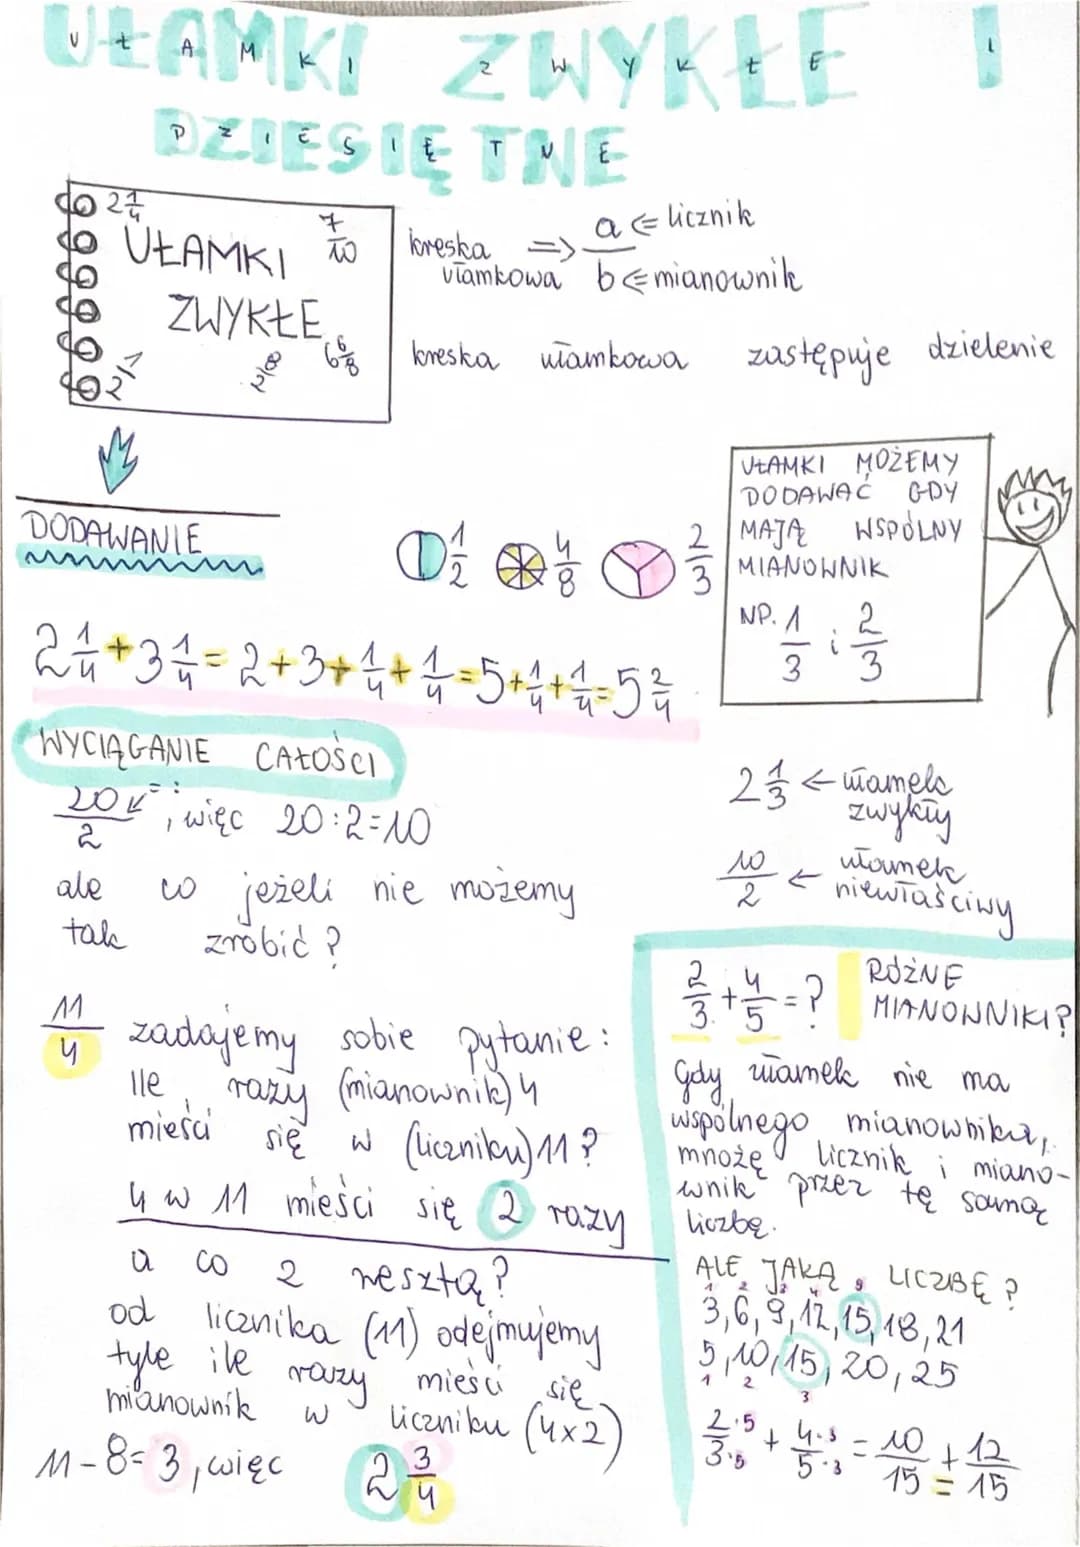 UŁAMKI ZWYKŁE I
DZIESIĘTNE
2 1/4
UŁAMKI 7/10
ZWYKŁE
2/1 2/8 6 6/8
kreska ułamkowa => a/b
a ⇐ licznik
b ⇐ mianownik
kreska ułamkowa zastępuje dzielenie
DODAWANIE
1/2 4/8 2/3
UŁAMKI MOŻEMY
DODAWAĆ GDY
MAJĄ WSPÓLNY
MIANOWNIK
NP. 1/3 i 2/3
2 1/4 + 3 1/4 = 2+3+1/4+1/4=5+1/4+1/4=5 2/4
WYCIĄGANIE CAŁOŚCI
20/2 ↙ = : , więc 20:2=10
ale co jeżeli nie możemy
tak zrobić?
2 1/3 ← ułamek
zwykły
10/2 ← ułamek
niewłaściwy
11/4 zadajemy sobie pytanie:
Ile razy (mianownik) 4
mieści się w (liczniku) 11?
4 w 11 mieści się 2 razy
a co z resztą?
od licznika (11) odejmujemy
tyle ile razy mieści się
mianownik w liczniku (4x2)
11-8=3, więc 2 3/4
2/3 + 4/5 = ? RÓŻNE
MIANOWNIKI?
Gdy ułamek nie ma
wspólnego mianownika,
mnożę licznik i miano-
wnik przez tę samą
liczbę.
ALE JAKĄ LICZBĘ?
1 2 3 4 5
3,6,9,12,15,18,21
5,10,15,20,25
1 2 3
2·5/3·5 + 4·3/5·3 = 10/15 + 12/15
=